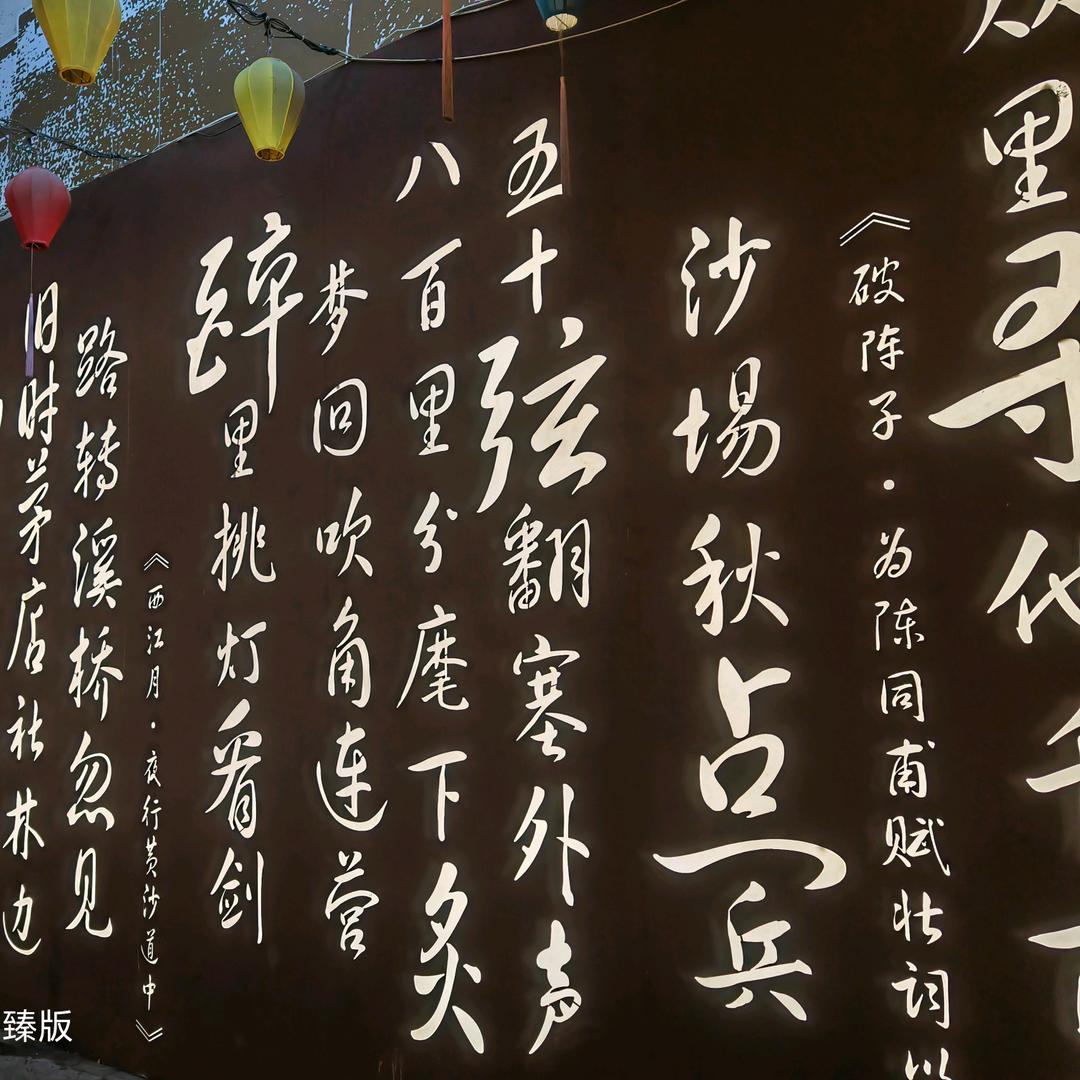 旧时茅店社林边
路转溪桥忽见
《西江月·夜行黄沙道中》
醉里挑灯看剑
梦回吹角连营
八百里分麾下炙
五十弦翻塞外声
沙場秋点兵
《破阵子·为陈同甫赋壮词以
众里寻他千百
臻版